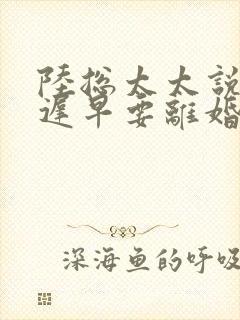 陸總太太說
遲早要離婚
深海魚的呼吸